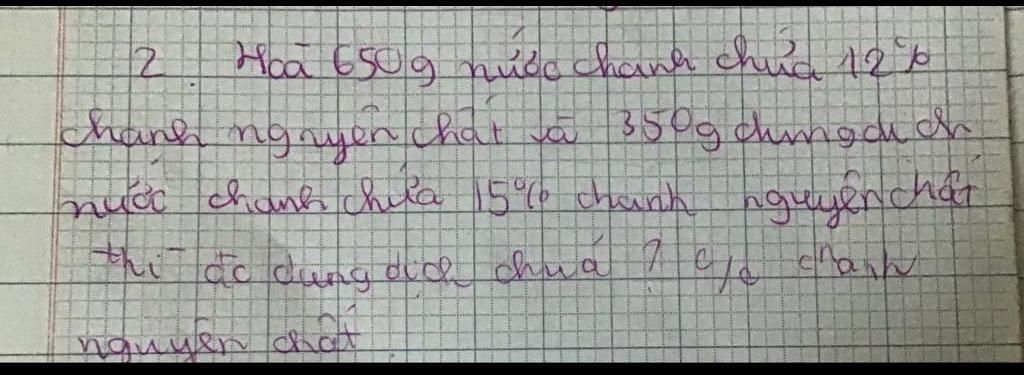 2. Hoà 650g nước chanh chứa 12%
chanh nguyên chất và 350g dung dịch
nước chanh chứa 15% chanh nguyên chất
thì đc dung dịch chứa ? % chanh
nguyên chất